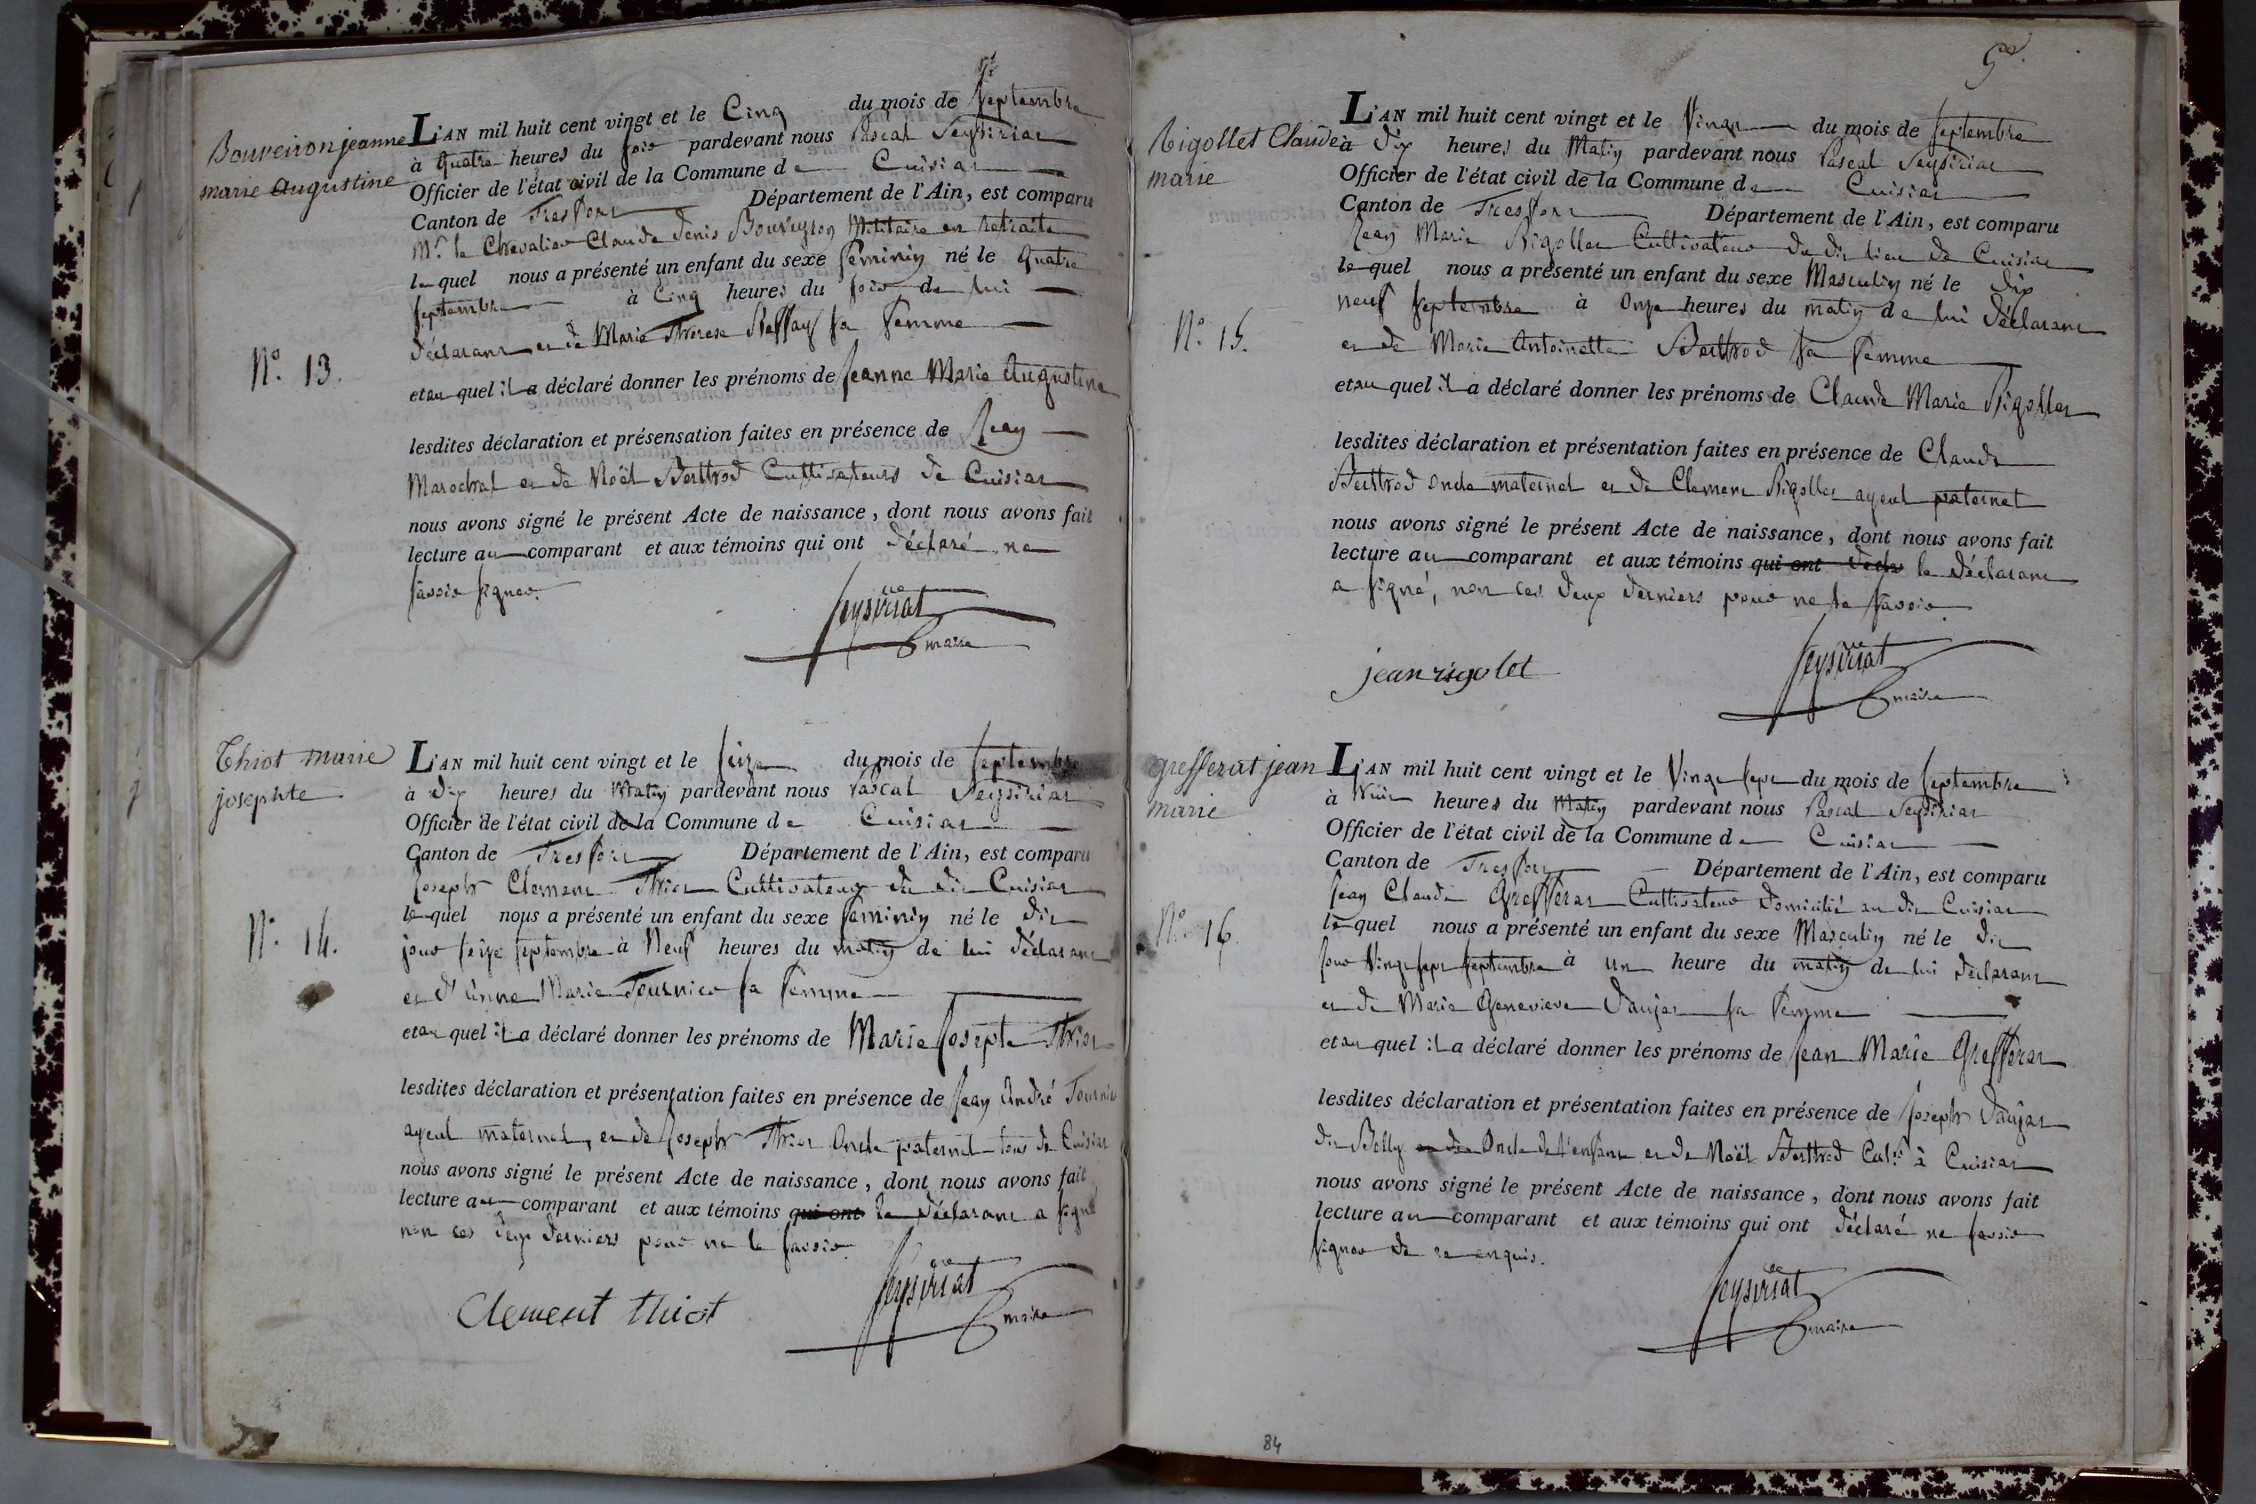 Bouveiron jeanne
marie augustine
L'AN mil huit cent vingt et le Cinq du mois de Septembre
à quatre heures du soir pardevant nous Pascal Seysiriat
Officier de l'état civil de la Commune de Cuisiat
Canton de Treffort Département de l'Ain, est comparu
Mr. le Chevalier Claude Denis Bouveyron Militaire en retraite
lequel nous a présenté un enfant du sexe feminin né le quatre
septembre à Cinq heures du soir de lui
déclarant et de Marie Therese sa femme
N.o 13.
et au quel il a déclaré donner les prénoms de Jeanne Marie Augustine
lesdites déclaration et présensation faites en présence de Jean
Marechal et de Noël Berthod Cultivateurs de Cuisiat
nous avons signé le présent Acte de naissance, dont nous avons fait
lecture au comparant et aux témoins qui ont déclaré ne
savoir signer.
Seysiriat
maire
Thiot marie
josephte
L'AN mil huit cent vingt et le seize du mois de Septembre
à dix heures du Matin pardevant nous Pascal Seysiriat
Officier de l'état civil de la Commune de Cuisiat
Canton de Treffort Département de l'Ain, est comparu
Joseph Clement Thiot Cultivateur du dit Cuisiat
lequel nous a présenté un enfant du sexe feminin né le dit
jour seize septembre à Neuf heures du matin de lui déclarant
et d'anne Marie Tournier sa femme
N.o 14.
et au quel il a déclaré donner les prénoms de Marie Josepte Thiot
lesdites déclaration et présentation faites en présence de Jean André Tournier
ayeul maternel, et de Joseph Thiot Oncle paternel tous de Cuisiat
nous avons signé le présent Acte de naissance, dont nous avons fait
lecture au comparant et aux témoins qui ont le déclarant a signé
non ces deux derniers pour ne le savoir.
Clement thiot
Seysiriat
maire
Rigollet Claude
marie
L'AN mil huit cent vingt et le Vingt du mois de septembre
à dix heures du Matin pardevant nous Pascal Seysiriat
Officier de l'état civil de la Commune de Cuisiat
Canton de Treffort Département de l'Ain, est comparu
Jean Marie Rigollet Cultivateur du dit lieu de Cuisiat
lequel nous a présenté un enfant du sexe Masculin né le dix
neuf septembre à onze heures du matin de lui déclarant
et de Marie Antoinette Berthod sa femme
N.o 15.
et au quel il a déclaré donner les prénoms de Claude Marie Rigollet
lesdites déclaration et présentation faites en présence de Claude
Berthod oncle maternel et de Clement Rigollet ayeul paternel
nous avons signé le présent Acte de naissance, dont nous avons fait
lecture au comparant et aux témoins qui ont le déclarant
a signé, non ces deux derniers pour ne le savoir.
jean rigolet
Seysiriat
maire
grefferat jean
marie
L'AN mil huit cent vingt et le Vingt sept du mois de septembre
à huit heures du Matin pardevant nous Pascal Seysiriat
Officier de l'état civil de la Commune de Cuisiat
Canton de Treffort Département de l'Ain, est comparu
Jean Claude Grefferat Cultivateur domicilié au dit Cuisiat
lequel nous a présenté un enfant du sexe Masculin né le dit
jour Vingt sept septembre à un heure du matin de lui déclarant
et de Marie Genevieve Daujat sa femme
N.o 16.
et au quel il a déclaré donner les prénoms de Jean Marie Grefferat
lesdites déclaration et présentation faites en présence de Joseph Daujat
dit Belly Oncle de l'enfant et de Noël Berthod Cult.r à Cuisiat
nous avons signé le présent Acte de naissance, dont nous avons fait
lecture au comparant et aux témoins qui ont déclaré ne savoir
signer de ce enquis.
Seysiriat
maire
84